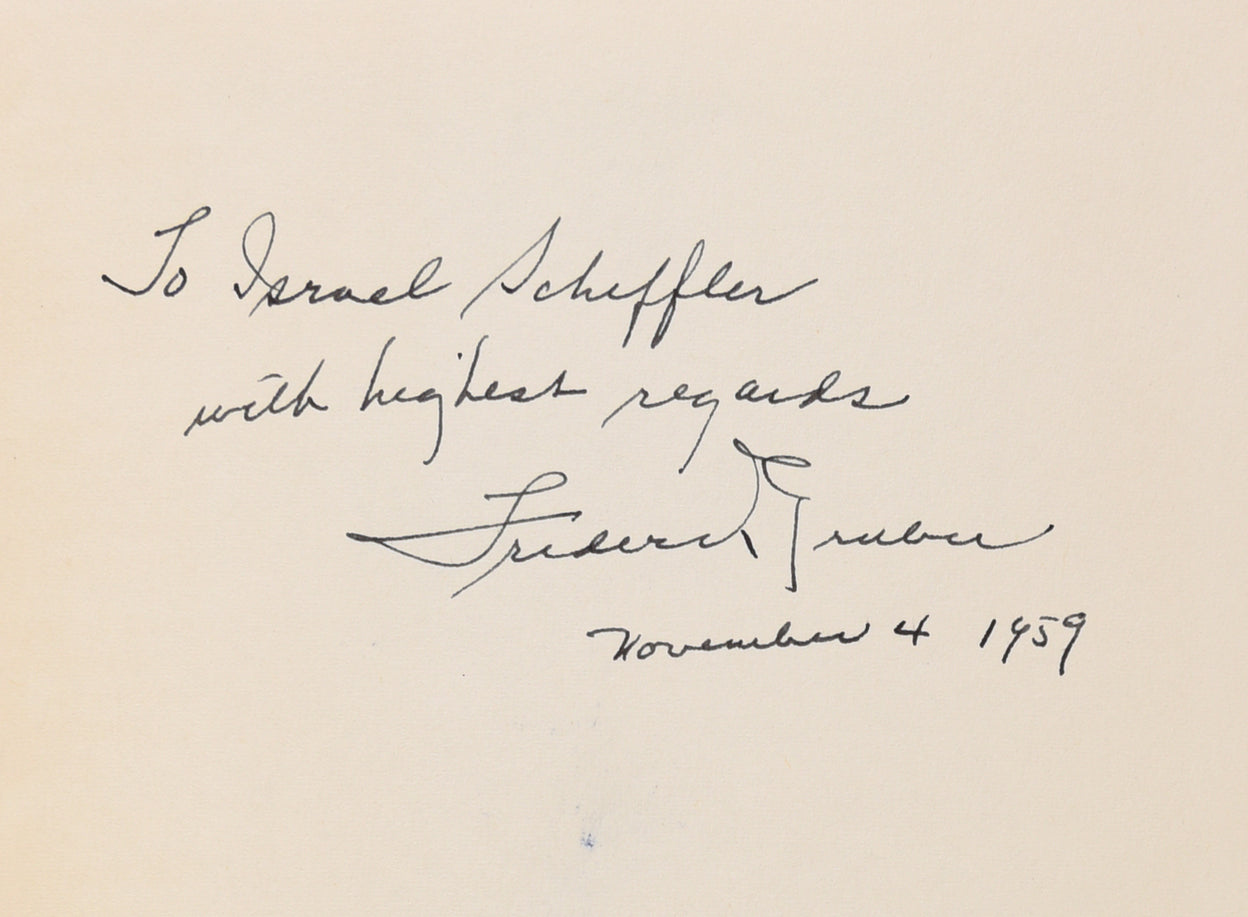 To Israel Scheffler
with highest regards
Frederick Gruber
November 4 1959